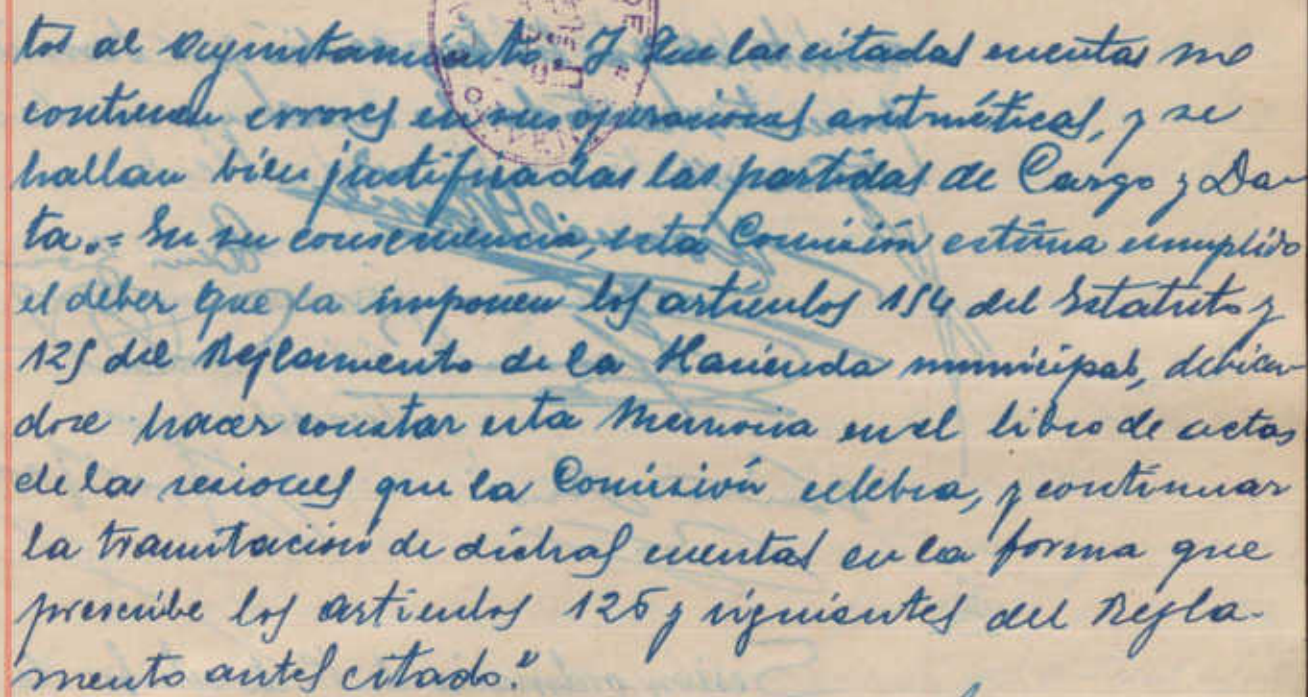 tos al Ayuntamiento. Y que las citadas cuentas no
contienen errores en sus operaciones aritméticas, y se
hallan bien justificadas las partidas de Cargo y Da-
ta.= En su consecuencia, esta Comisión estima cumplido
el deber que la imponen los artículos 154 del Estatuto y
125 del Reglamento de la Hacienda municipal, debien-
dose hacer constar esta Memoria en el libro de actas
de las sesiones que la Comisión celebra, y continuar
la tramitación de dichas cuentas en la forma que
prescribe los artículos 126 y siguientes del Regla-
mento antes citado."